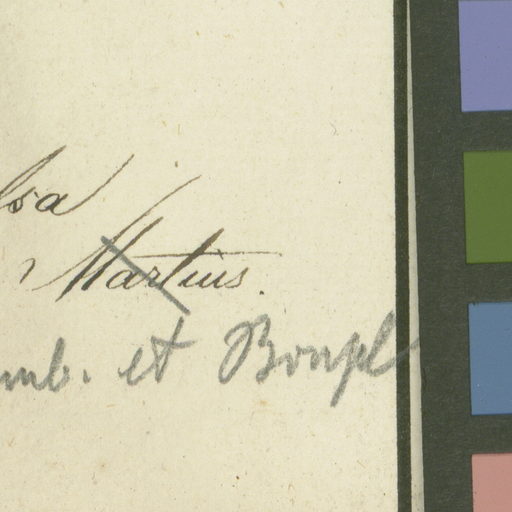 lsa
Martius.
mb. et Bonpl